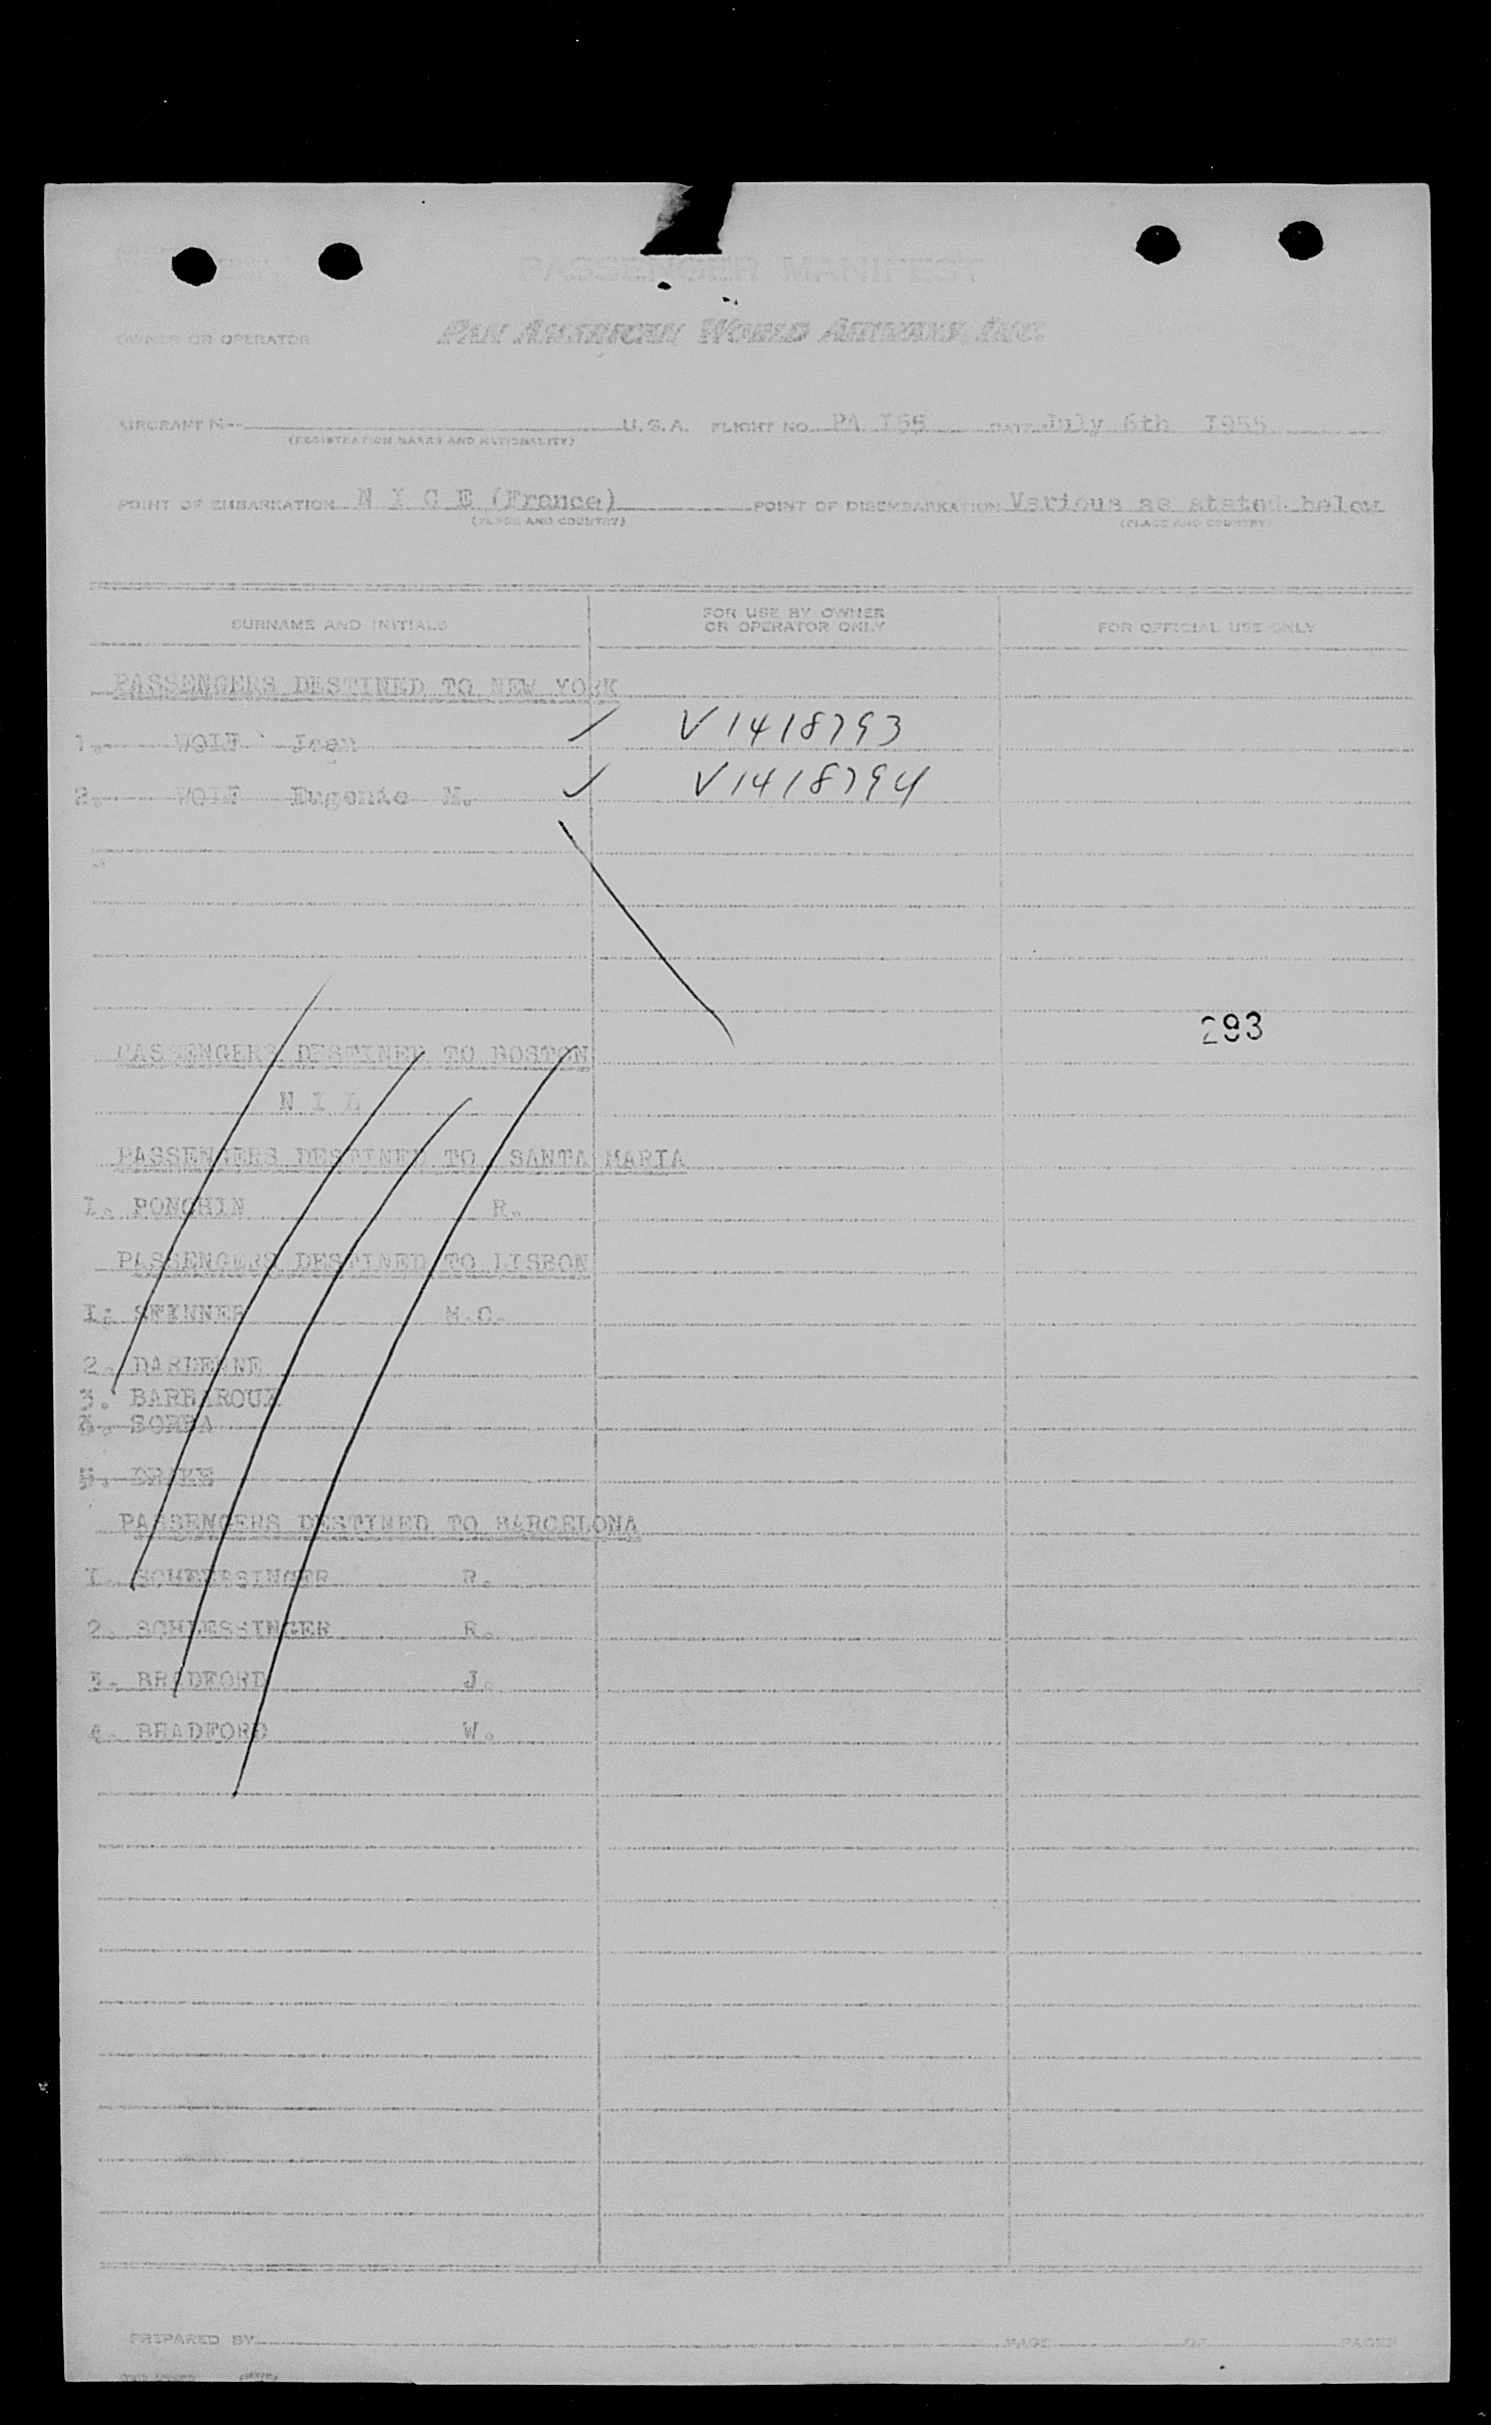 PASSENGER MANIFEST
OWNER OR OPERATOR PAN AMERICAN WORLD AIRWAYS, INC.
AIRCRAFT N- U.S.A. FLIGHT NO. PA I55 DATE July 6th I955
(REGISTRATION MARKS AND NATIONALITY)
POINT OF EMBARKATION N I C E (France) POINT OF DISEMBARKATION Various as stated below
(PLACE AND COUNTRY) (PLACE AND COUNTRY)
SURNAME AND INITIALS FOR USE BY OWNER OR OPERATOR ONLY FOR OFFICIAL USE ONLY
PASSENGERS DESTINED TO NEW YORK
1. WOLF Jean ✓ V1418793
2. WOLF Eugenie M. ✓ V1418794
293
PASSENGERS DESTINED TO BOSTON
N I L
PASSENGERS DESTINED TO SANTA MARIA
I. PONCHIN R.
PASSENGERS DESTINED TO LISBON
I. SKINNER M.C.
2. DARDENNE
3. BARBAROUX
4. SORBA
5. DRAKE
PASSENGERS DESTINED TO BARCELONA
I. SCHLESSINGER R.
2. SCHLESSINGER R.
3. BRADFORD J.
4. BRADFORD W.
PREPARED BY PAGE OF PAGES